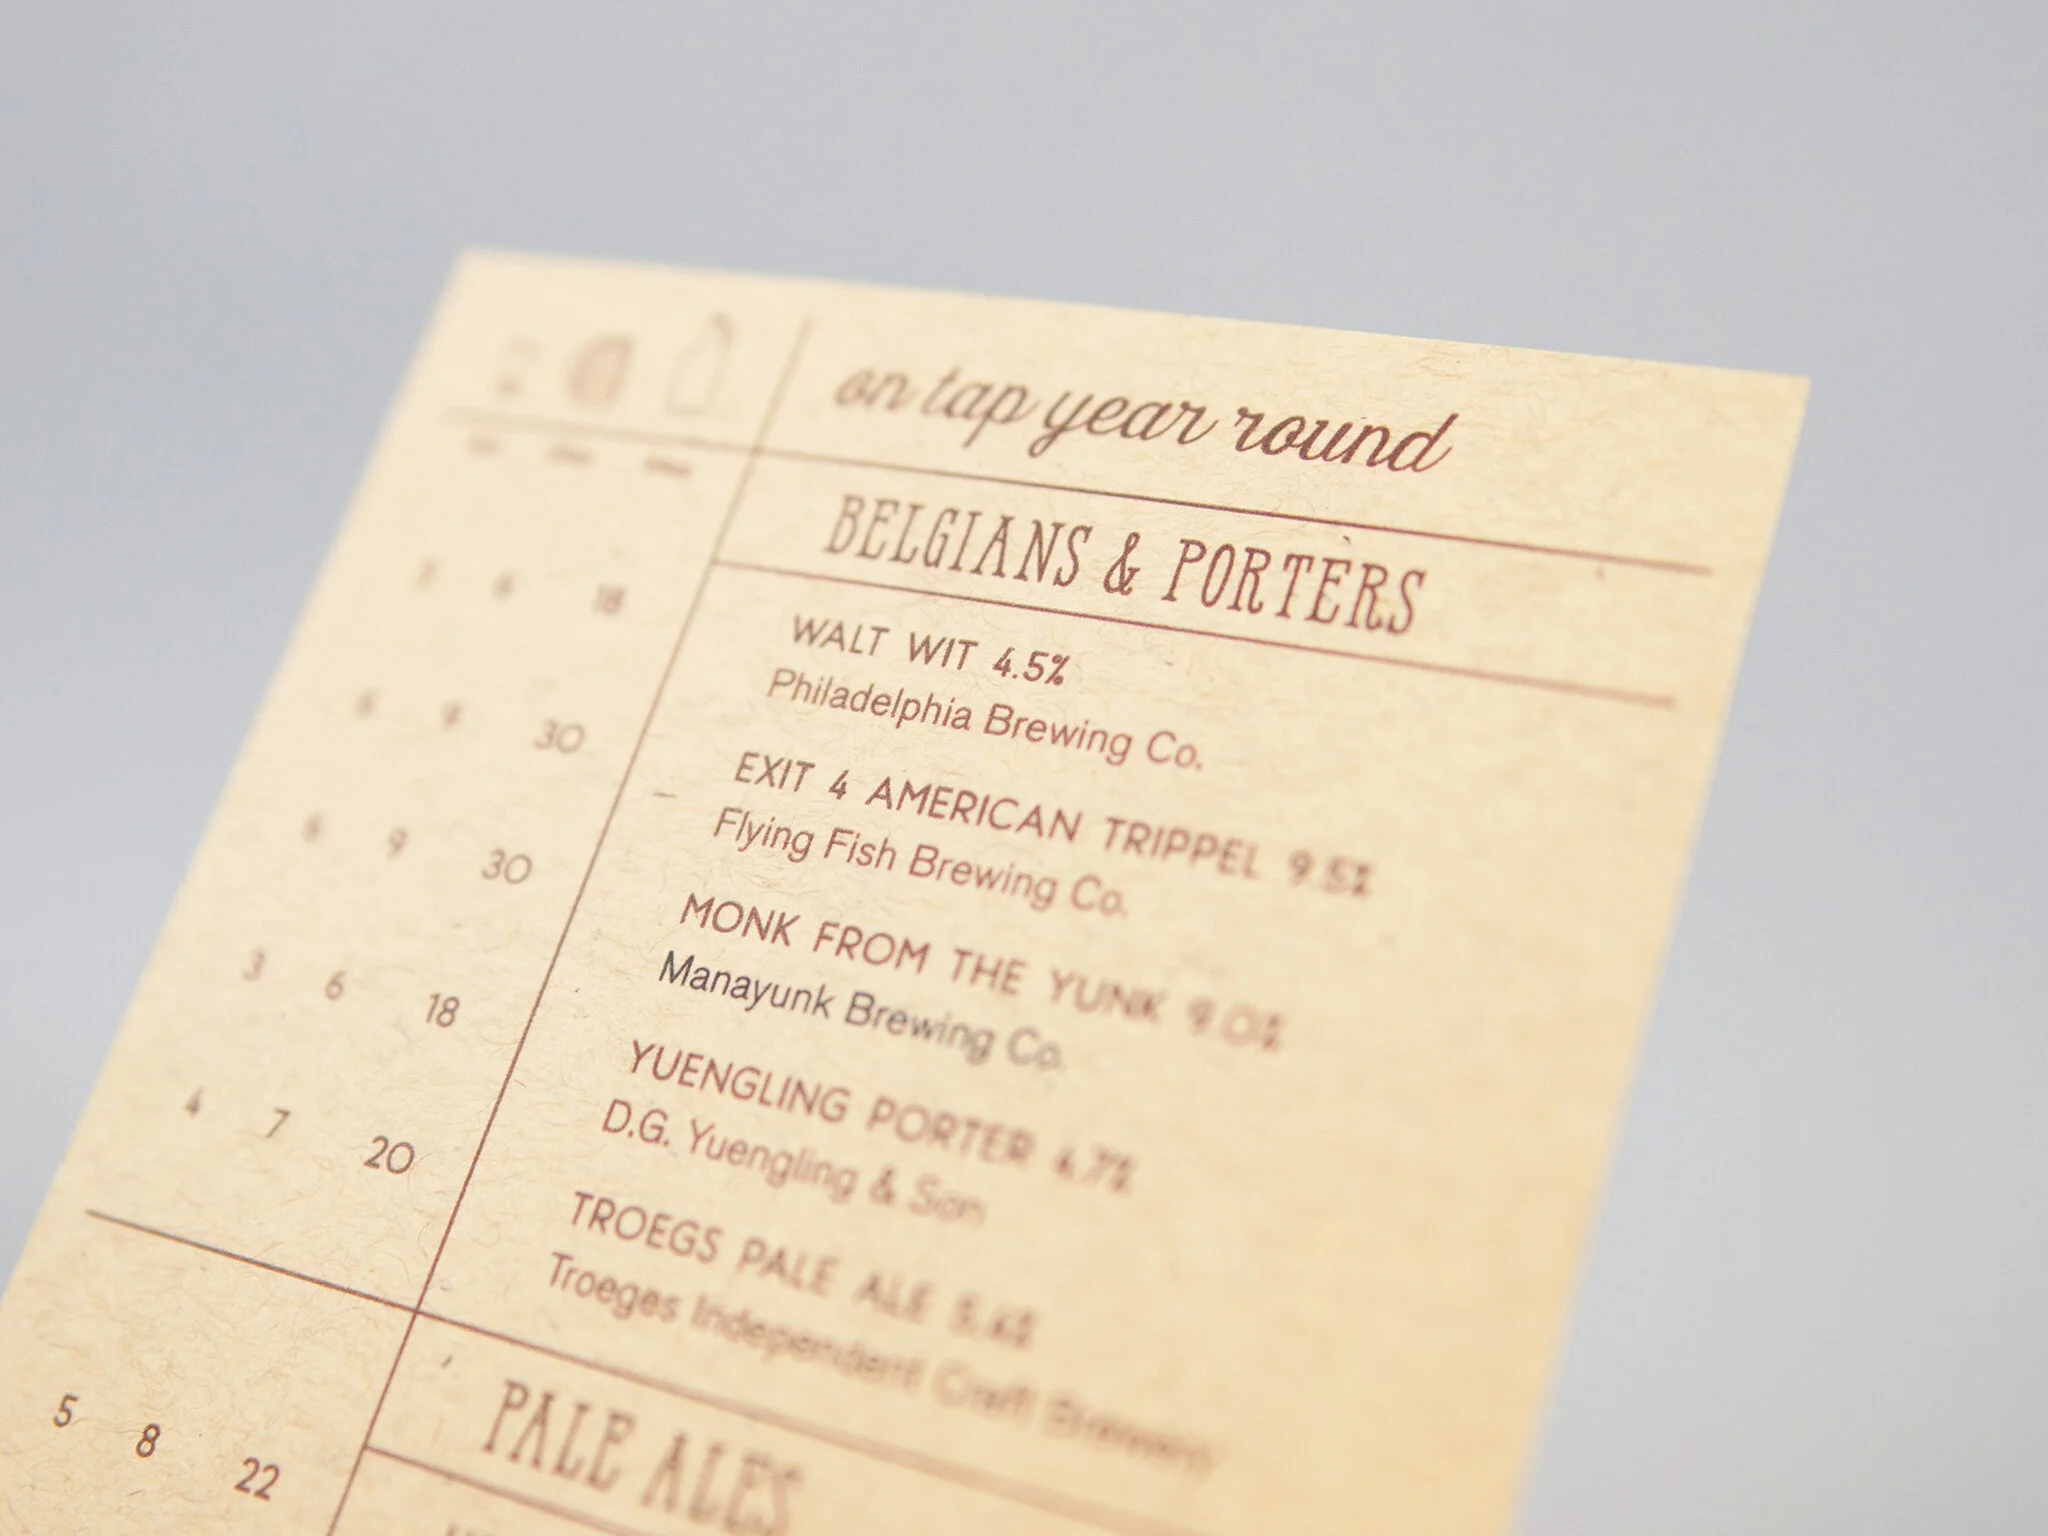 on tap year round
BELGIANS & PORTERS
WALT WIT 4.5%
Philadelphia Brewing Co.
6 18
EXIT 4 AMERICAN TRIPPEL 9.5%
Flying Fish Brewing Co.
6 9 30
MONK FROM THE YUNK 9.0%
Manayunk Brewing Co.
6 9 30
YUENGLING PORTER 4.7%
D.G. Yuengling & Son
3 6 18
TROEGS PALE ALE
Troeges Independent Craft Brewery
4 7 20
PALE ALES
5 8 22